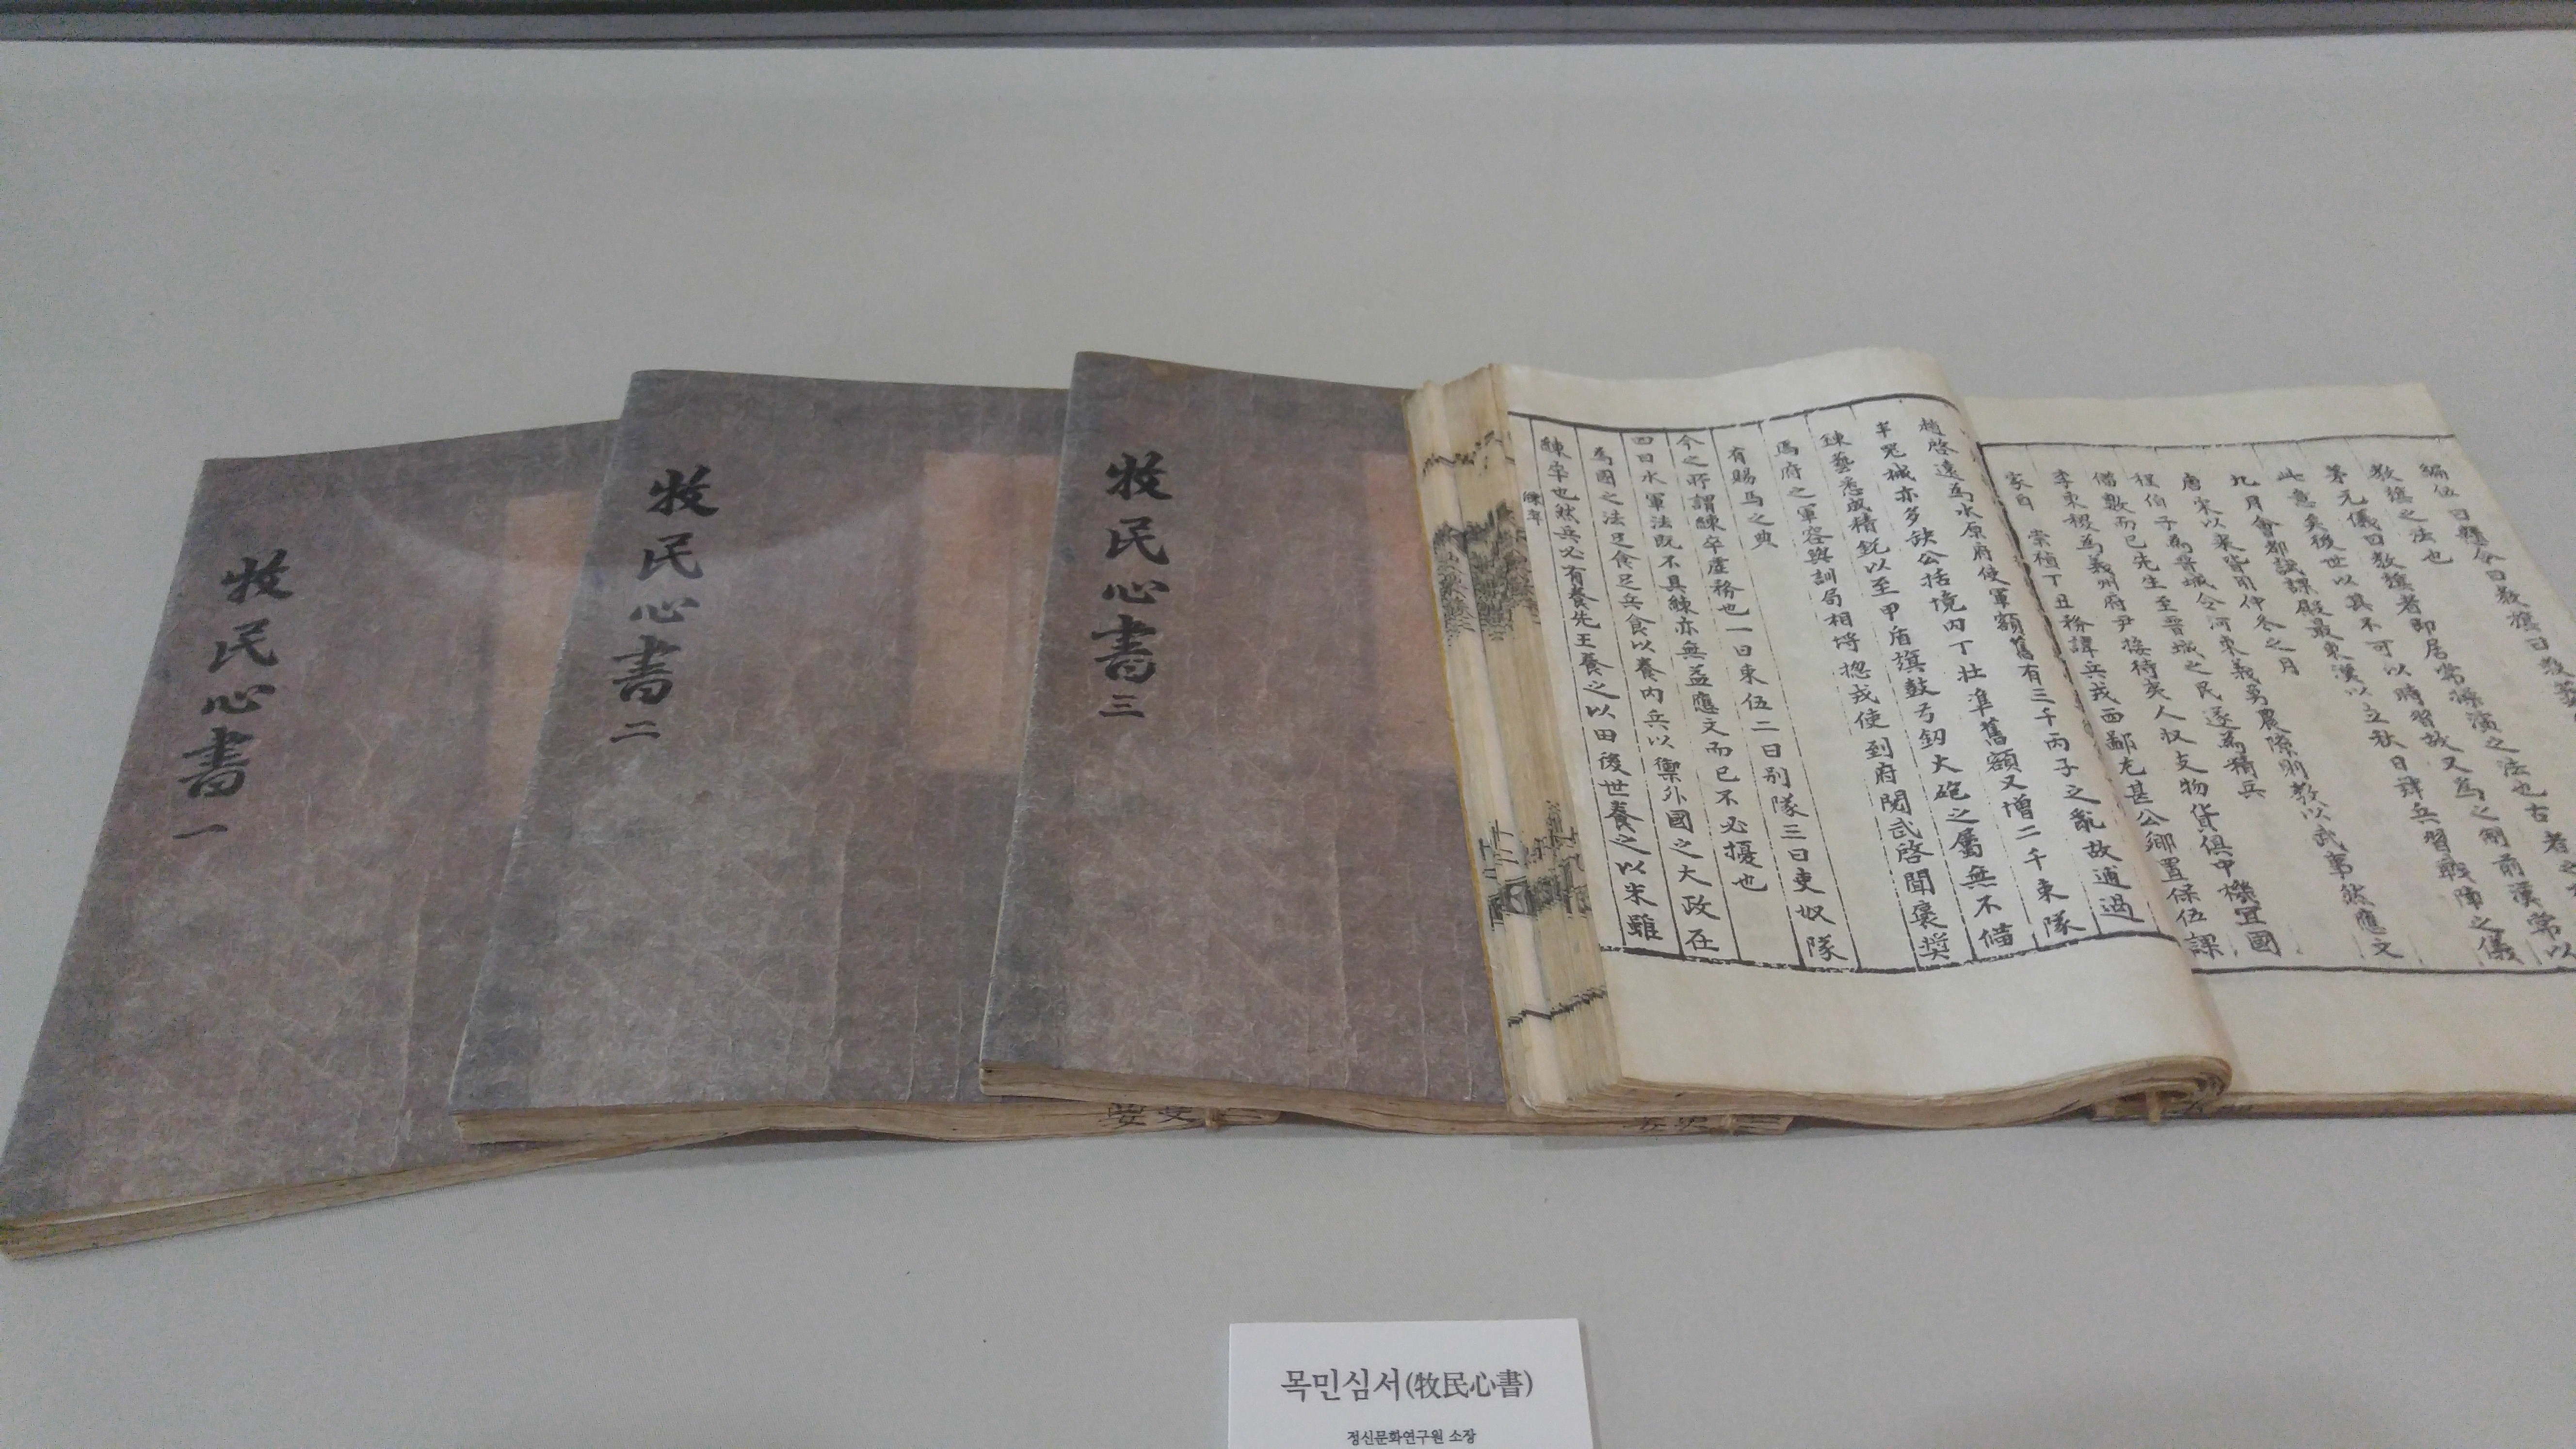 牧民心書 一
牧民心書 二
牧民心書 三
趙啓遠爲水原府使軍額舊有三千丙子之亂故逋過
半咒械亦多缺公括境內丁壯準舊額又增二千束隊
鍊藝悉成精銳以至甲盾旗鼓弓釖大砲之屬無不備
爲府之軍容與訓局相埓摠戎使到府閱武啓聞褒奬
有賜馬之典
今之所謂練卒虛務也一曰束伍二曰别隊三曰吏奴隊
四曰水軍法旣不具練亦無益應文而已不必擾也
爲國之法足食足兵食以養內兵以禦外國之大政在
練卒也然兵必有養先王養之以田後世養之以米雖
編伍曰縣令曰教旗曰教藝
教旗之法也
茅元儀曰教旗者卽居常操演之法也古者
此意矣後世以其不可以時習故又爲之制前漢常以
比月會都試課殿最東漢以立秋日肄兵習戰陣之儀
唐宋以來皆用仲冬之月
程伯子爲晋城令河東義勇農隙則教以武事然應文
備數而已先生至晋城之民遂爲精兵
李東稷爲義州府尹接待夷人収支物貨俱中機宜國
家自 崇禎丁丑後諱兵戎西鄙尤甚公鄉置保伍課
목민심서(牧民心書)
정신문화연구원 소장